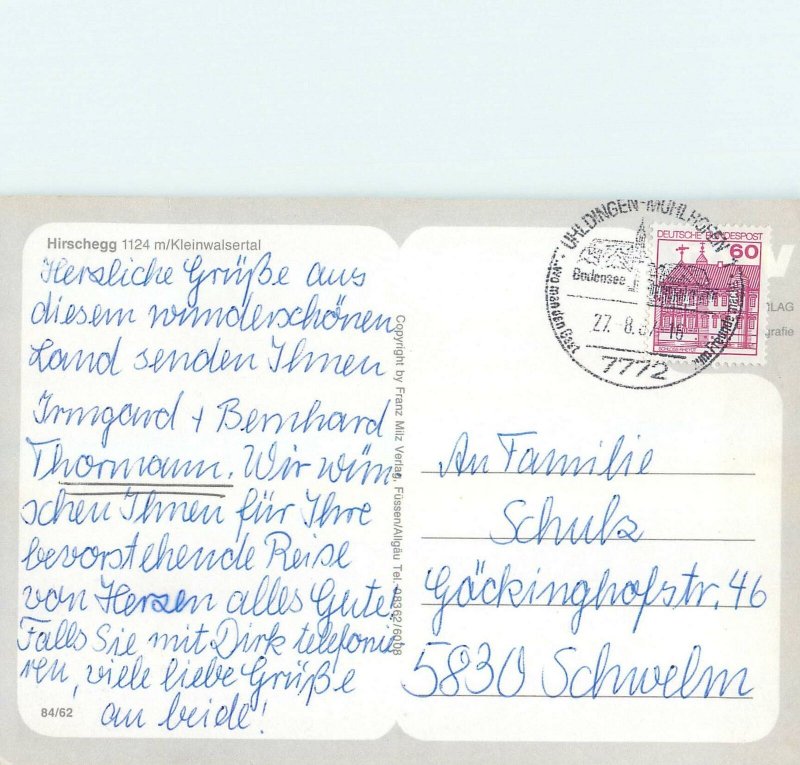 Hirschegg 1124 m/Kleinwalsertal
Herzliche Grüße aus
diesem wunderschönen
Land senden Ihnen
Irmgard + Bernhard
Thormann. Wir wün-
schen Ihnen für Ihre
bevorstehende Reise
von Herzen alles Gute!
Falls Sie mit Dirk telefonie
ren, viele liebe Grüße
an beide!
84/62
Copyright by Franz Milz Verlag, Füssen/Allgäu Tel. 08362/6008
UHLDINGEN-MÜHLHOFEN
Bodensee
...wo man den Gast
zum Freunde
27. 8. 87-16
7772
DEUTSCHE BUNDESPOST
60
LAG
grafie
An Familie
Schulz
Göckinghofstr. 46
5830 Schwelm